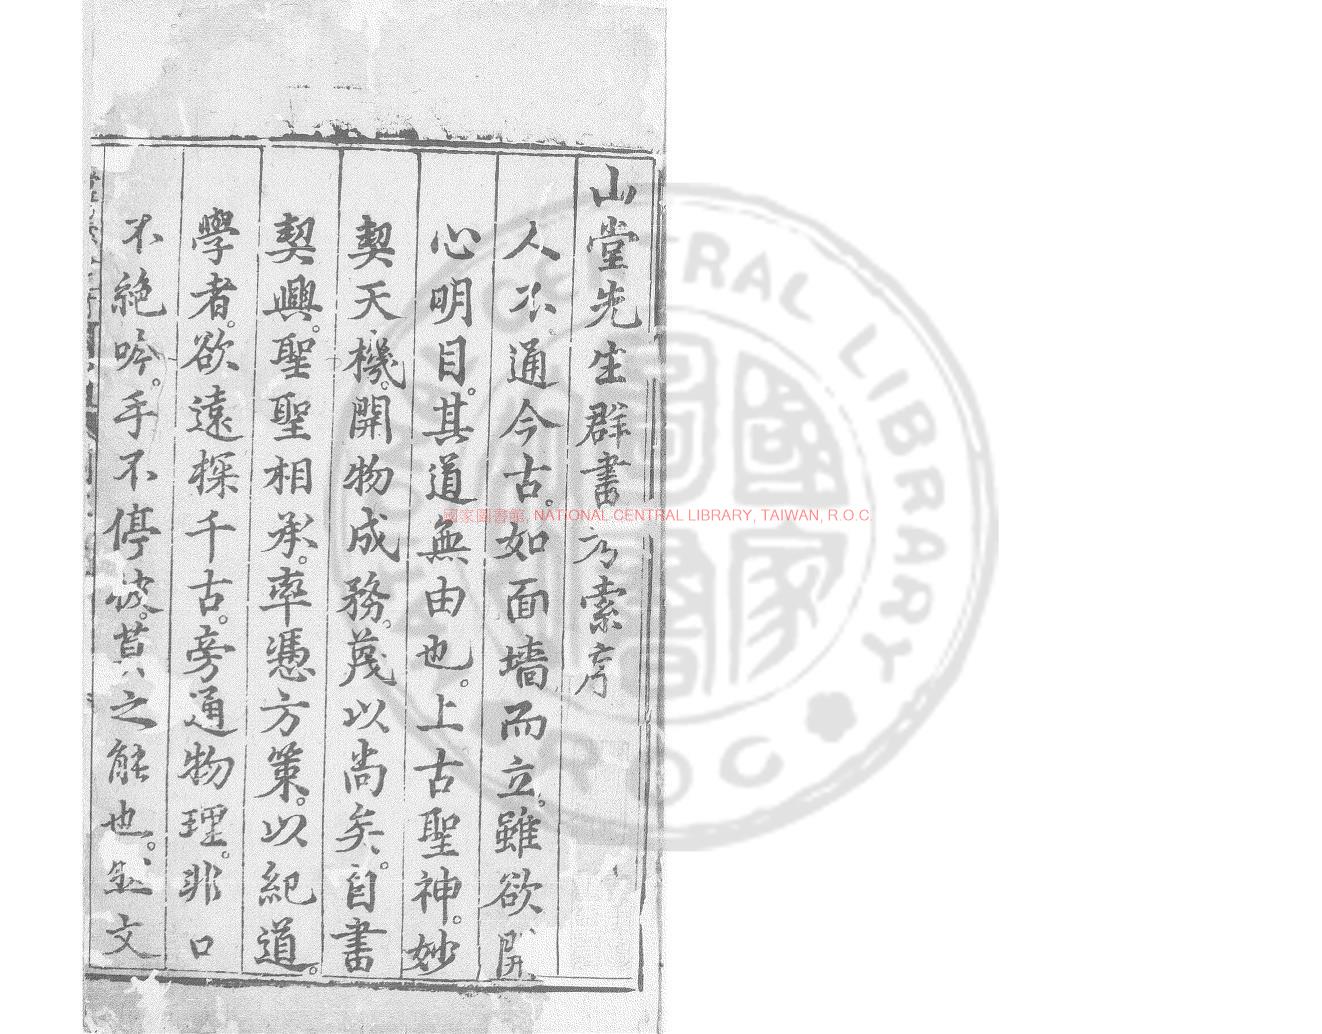 山堂先生群書考索序
人不通今古。如面墻而立。雖欲開
心明目。其道無由也。上古聖神。妙
契天機。開物成務。蔑以尚矣。自書
契興。聖聖相承。率憑方策。以紀道。
學者。欲遠探千古。旁通物理。非口
不絶吟。手不停披。莫之能也。然文
國家圖書館, NATIONAL CENTRAL LIBRARY, TAIWAN, R.O.C.
CENTRAL LIBRARY
ROC